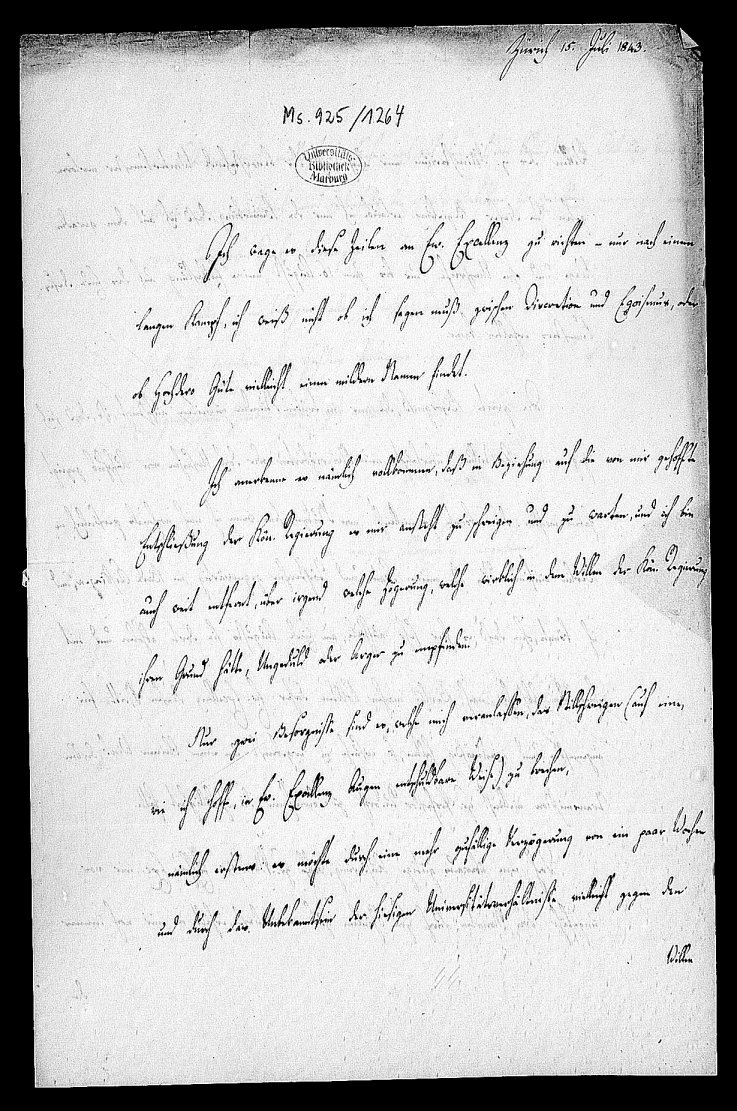 Zürich 15. Juli 1843.
Ms. 925/1264
Universitäts
Bibliothek
Marburg
Ich wage es diese Zeilen an Ew. Excellenz zu richten – nur nach einem
langen Kampf, ich weiß nicht ob ich sagen muß zwischen Discretion und Egoismus, oder
ob Hochdero Güte vielleicht einen mildern Namen findet.
Ich anerkenne es nämlich vollkommen, daß in Beziehung auf die von mir gehoffte
Entschließung der Kön. Regierung es mir ansteht zu schweigen und zu warten, und ich bin
auch weit entfernt, über irgend welche Zögerung, welche wirklich in dem Willen der Kön. Regierung
ihren Grund hätte, Ungeduld oder Ärger zu empfinden.
Nur zwei Besorgnisse sind es, welche mich veranlassen, das Stillschweigen (auf eine,
wie ich hoffe, in Ew. Excellenz Augen entschuldbare Weise) zu brechen,
nämlich erstens: es möchte durch eine mehr zufällige Verzögerung von ein paar Wochen
und durch das Unbekanntsein der hiesigen Universitätsverhältnisse vielleicht gegen den
Willen